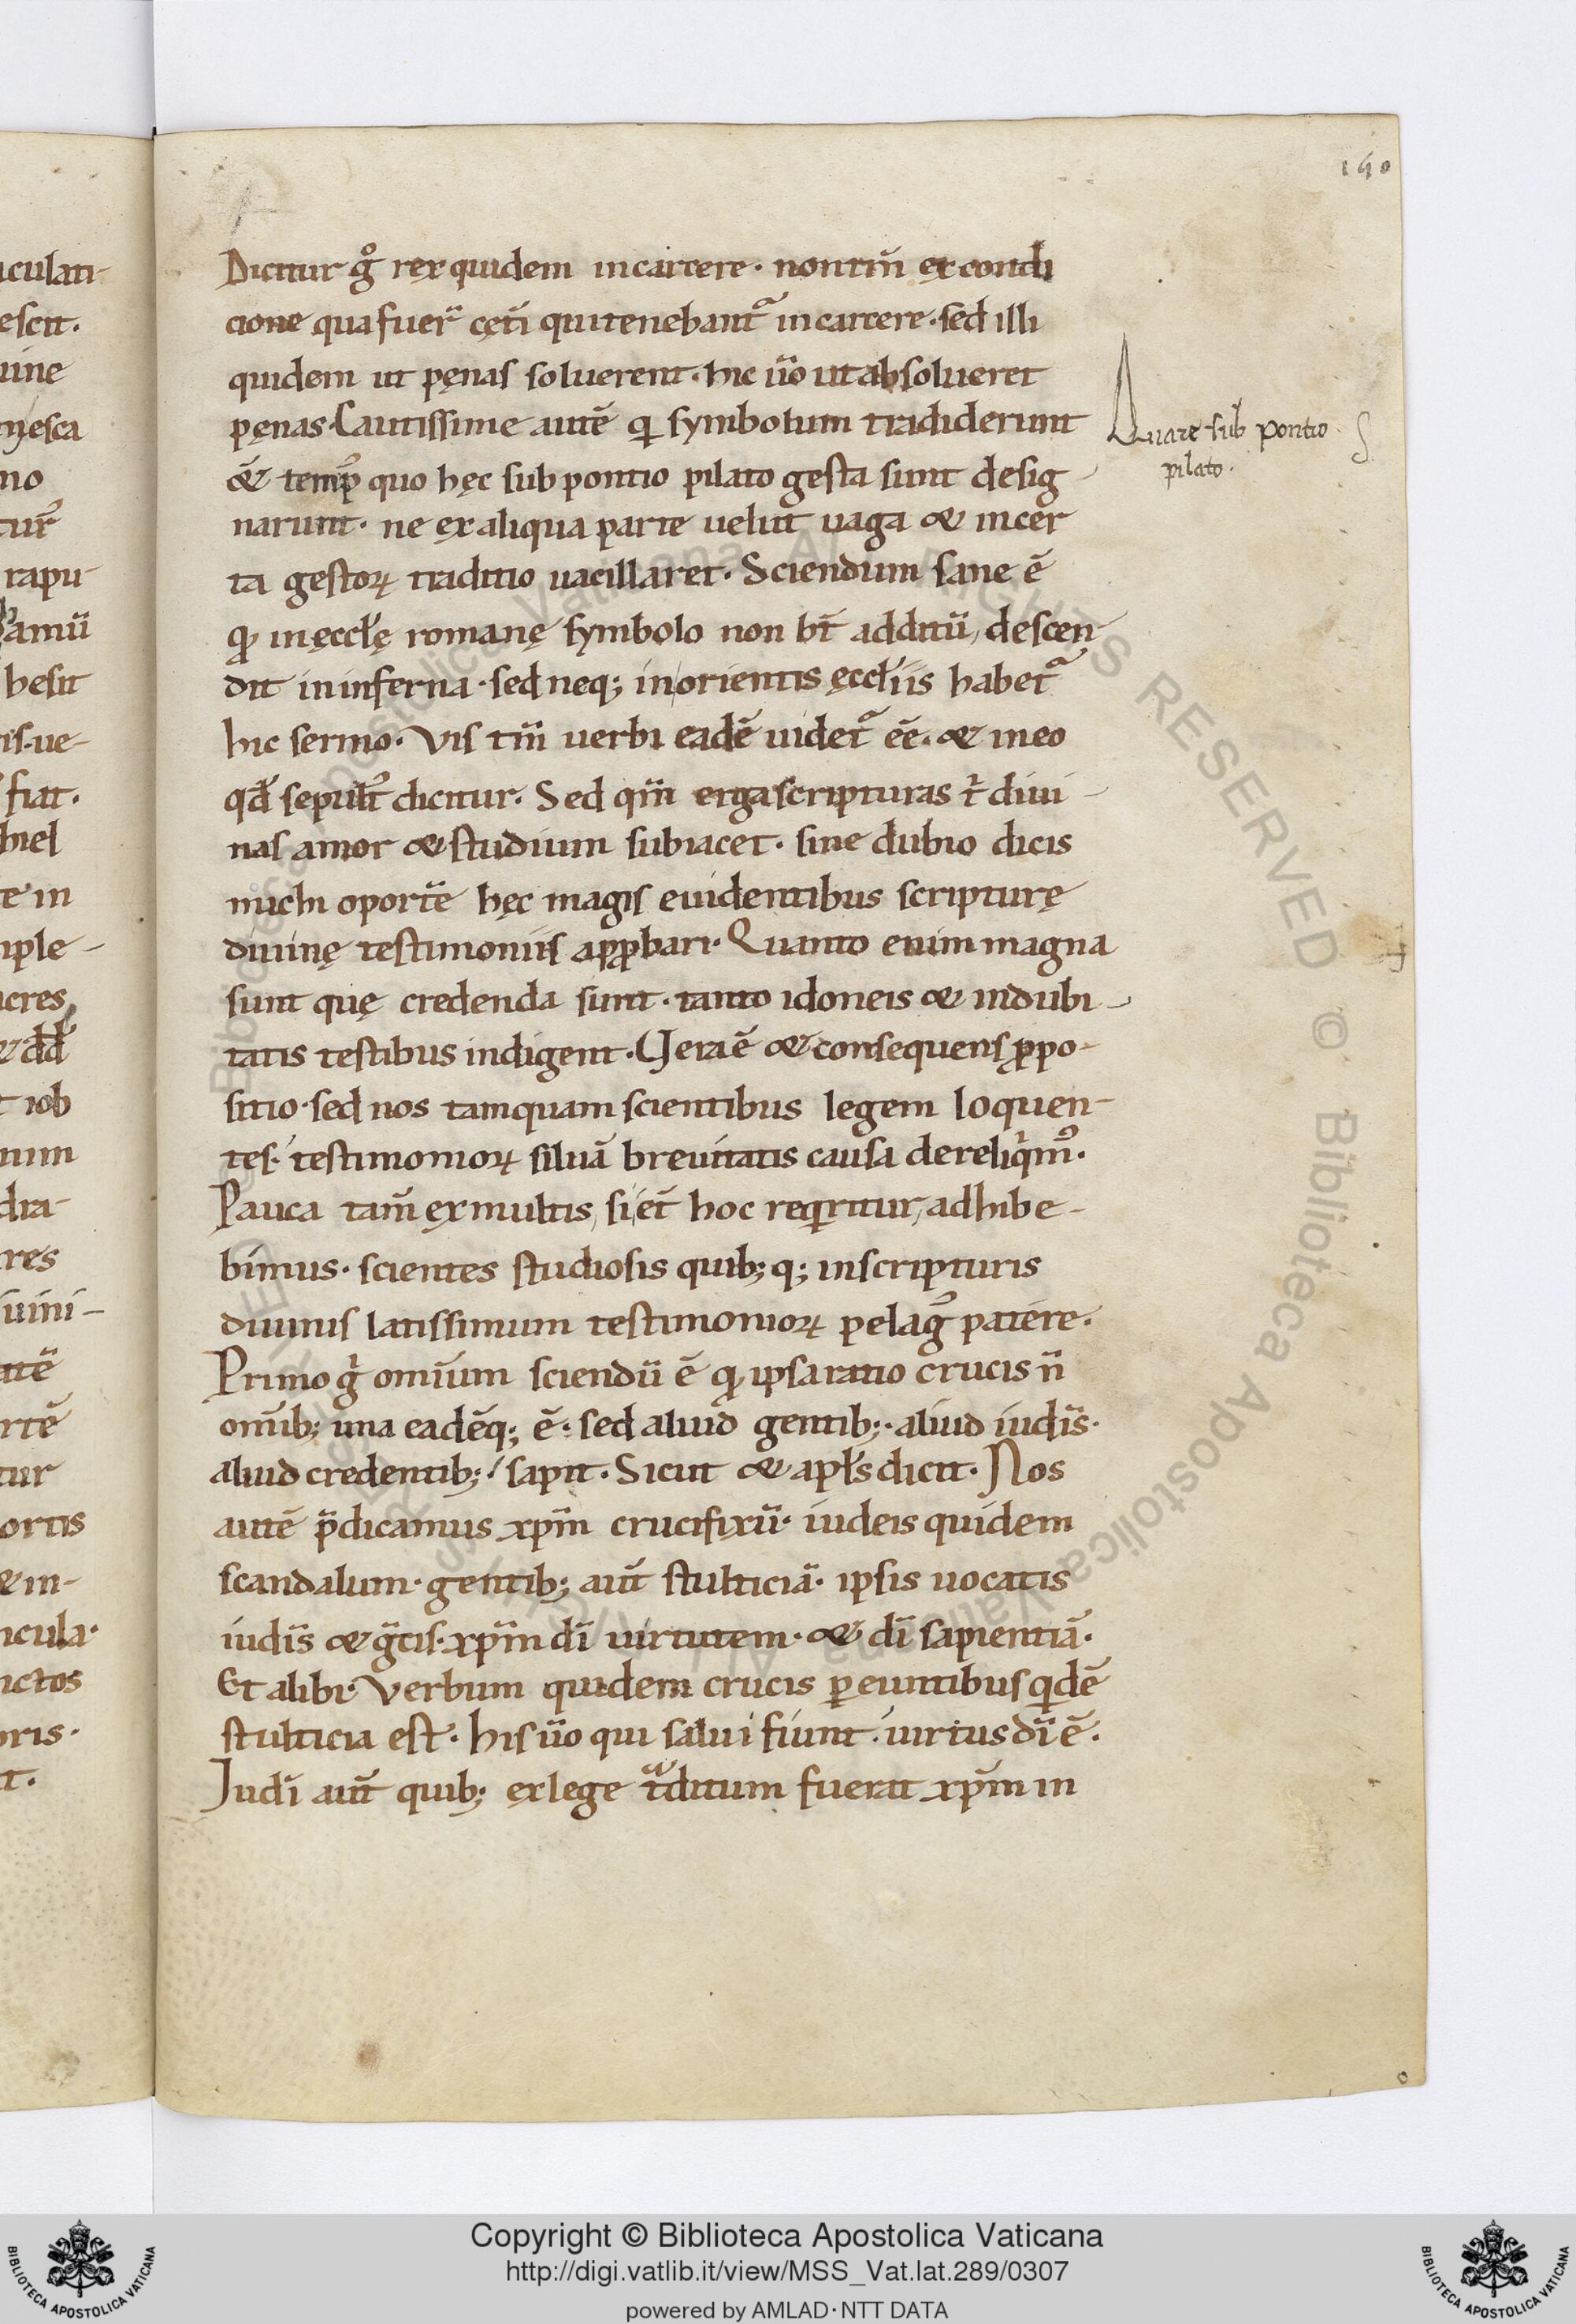 140
Dicitur gͦ rex quidem in carcere· non tm̄ ex condi
cione qua fuer̄ cęt̄i qui tenebant᷑ in carcere· sed illi
quidem ut pęnas soluerent· hic ūo ut absolueret
pęnas· Cautissime autē qi symbolum tradiderunt
Quare sub pontio
pilato·
& temꝑ quo hęc sub pontio pilato gesta sunt desig
narunt· ne ex aliqua parte uelut uaga & incer
ta gestoꝝ traditio uacillaret· Sciendum sane ē
qđ in ęccl̄ę romanę symbolo non ht̄ additū, descen-
dit in inferna· sed neq; in orientis ęccl̄iis habet᷑
hic sermo· Vis tm̄ uerbi eadē uidet᷑ eē· & in eo
qđ sepult᷒ dicitur· Sed qm̄ erga scripturas t̄ diui-
nas amor & studium subiacet· sine dubio dicis
michi oport̄e hęc magis euidentibus scripturę
diuinę testimoniis apꝓbari· Quanto enim magna
sunt quę credenda sunt· tanto idoneis & indubi-
tatis testibus indigent· Vera ē & consequens ꝓpo-
sitio· sed nos tamquam scientibus legem loquen-
tes· testimonioꝝ siluā breuitatis causa dereliqͥm᷒·
Pauca tam̄ ex multis, si et̄ hoc reqͥritur, adhibe-
bimus· scientes studiosis quib; q; in scripturis
diuinis latissimum testimonioꝝ pelag᷒ patere·
Primo gͥ omīum sciendū ē qđ ipsa ratio crucis n̄
om̄ib; una eadēq; ē· sed aliud gentib;· aliud iudīs·
aliud credentib;· sapit· Sicut & apl̄s dicit· Nos
autē p̄dicamus xp̄m crucifixū· iudeis quidem
scandalum· gentib; aut̄ stulticiā· ipsis uocatis
iudīs & ḡcis· xp̄m dī uirtutem· & dī sapientiā·
Et alibi· Verbum quidem crucis ꝑeuntibus qͥdē
stulticia est· his ūo qui salui fiunt· uirtus dī ē·
Iudī aut̄ quib; ex lege tͣditum fuerat xp̄m in
Copyright © Biblioteca Apostolica Vaticana
http://digi.vatlib.it/view/MSS_Vat.lat.289/0307
powered by AMLAD · NTT DATA